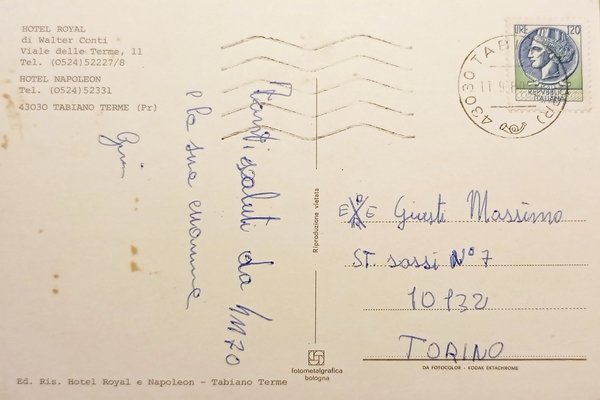 HOTEL ROYAL
di Walter Conti
Viale delle Terme, 11
Tel. (0524)52227/8
HOTEL NAPOLEON
Tel. (0524)52331
43030 TABIANO TERME (Pr)
LIRE 120
REPVBBLICA
ITALIANA
43030 TABIANO (PR)
Tanti saluti da
e la sua
Riproduzione vietata
E E Giusti Massimo
ST. sassi N° 7
10132
TORINO
fotometalgrafica
bologna
DA FOTOCOLOR - KODAK EKTACHROME
Ed. Ris. Hotel Royal e Napoleon - Tabiano Terme